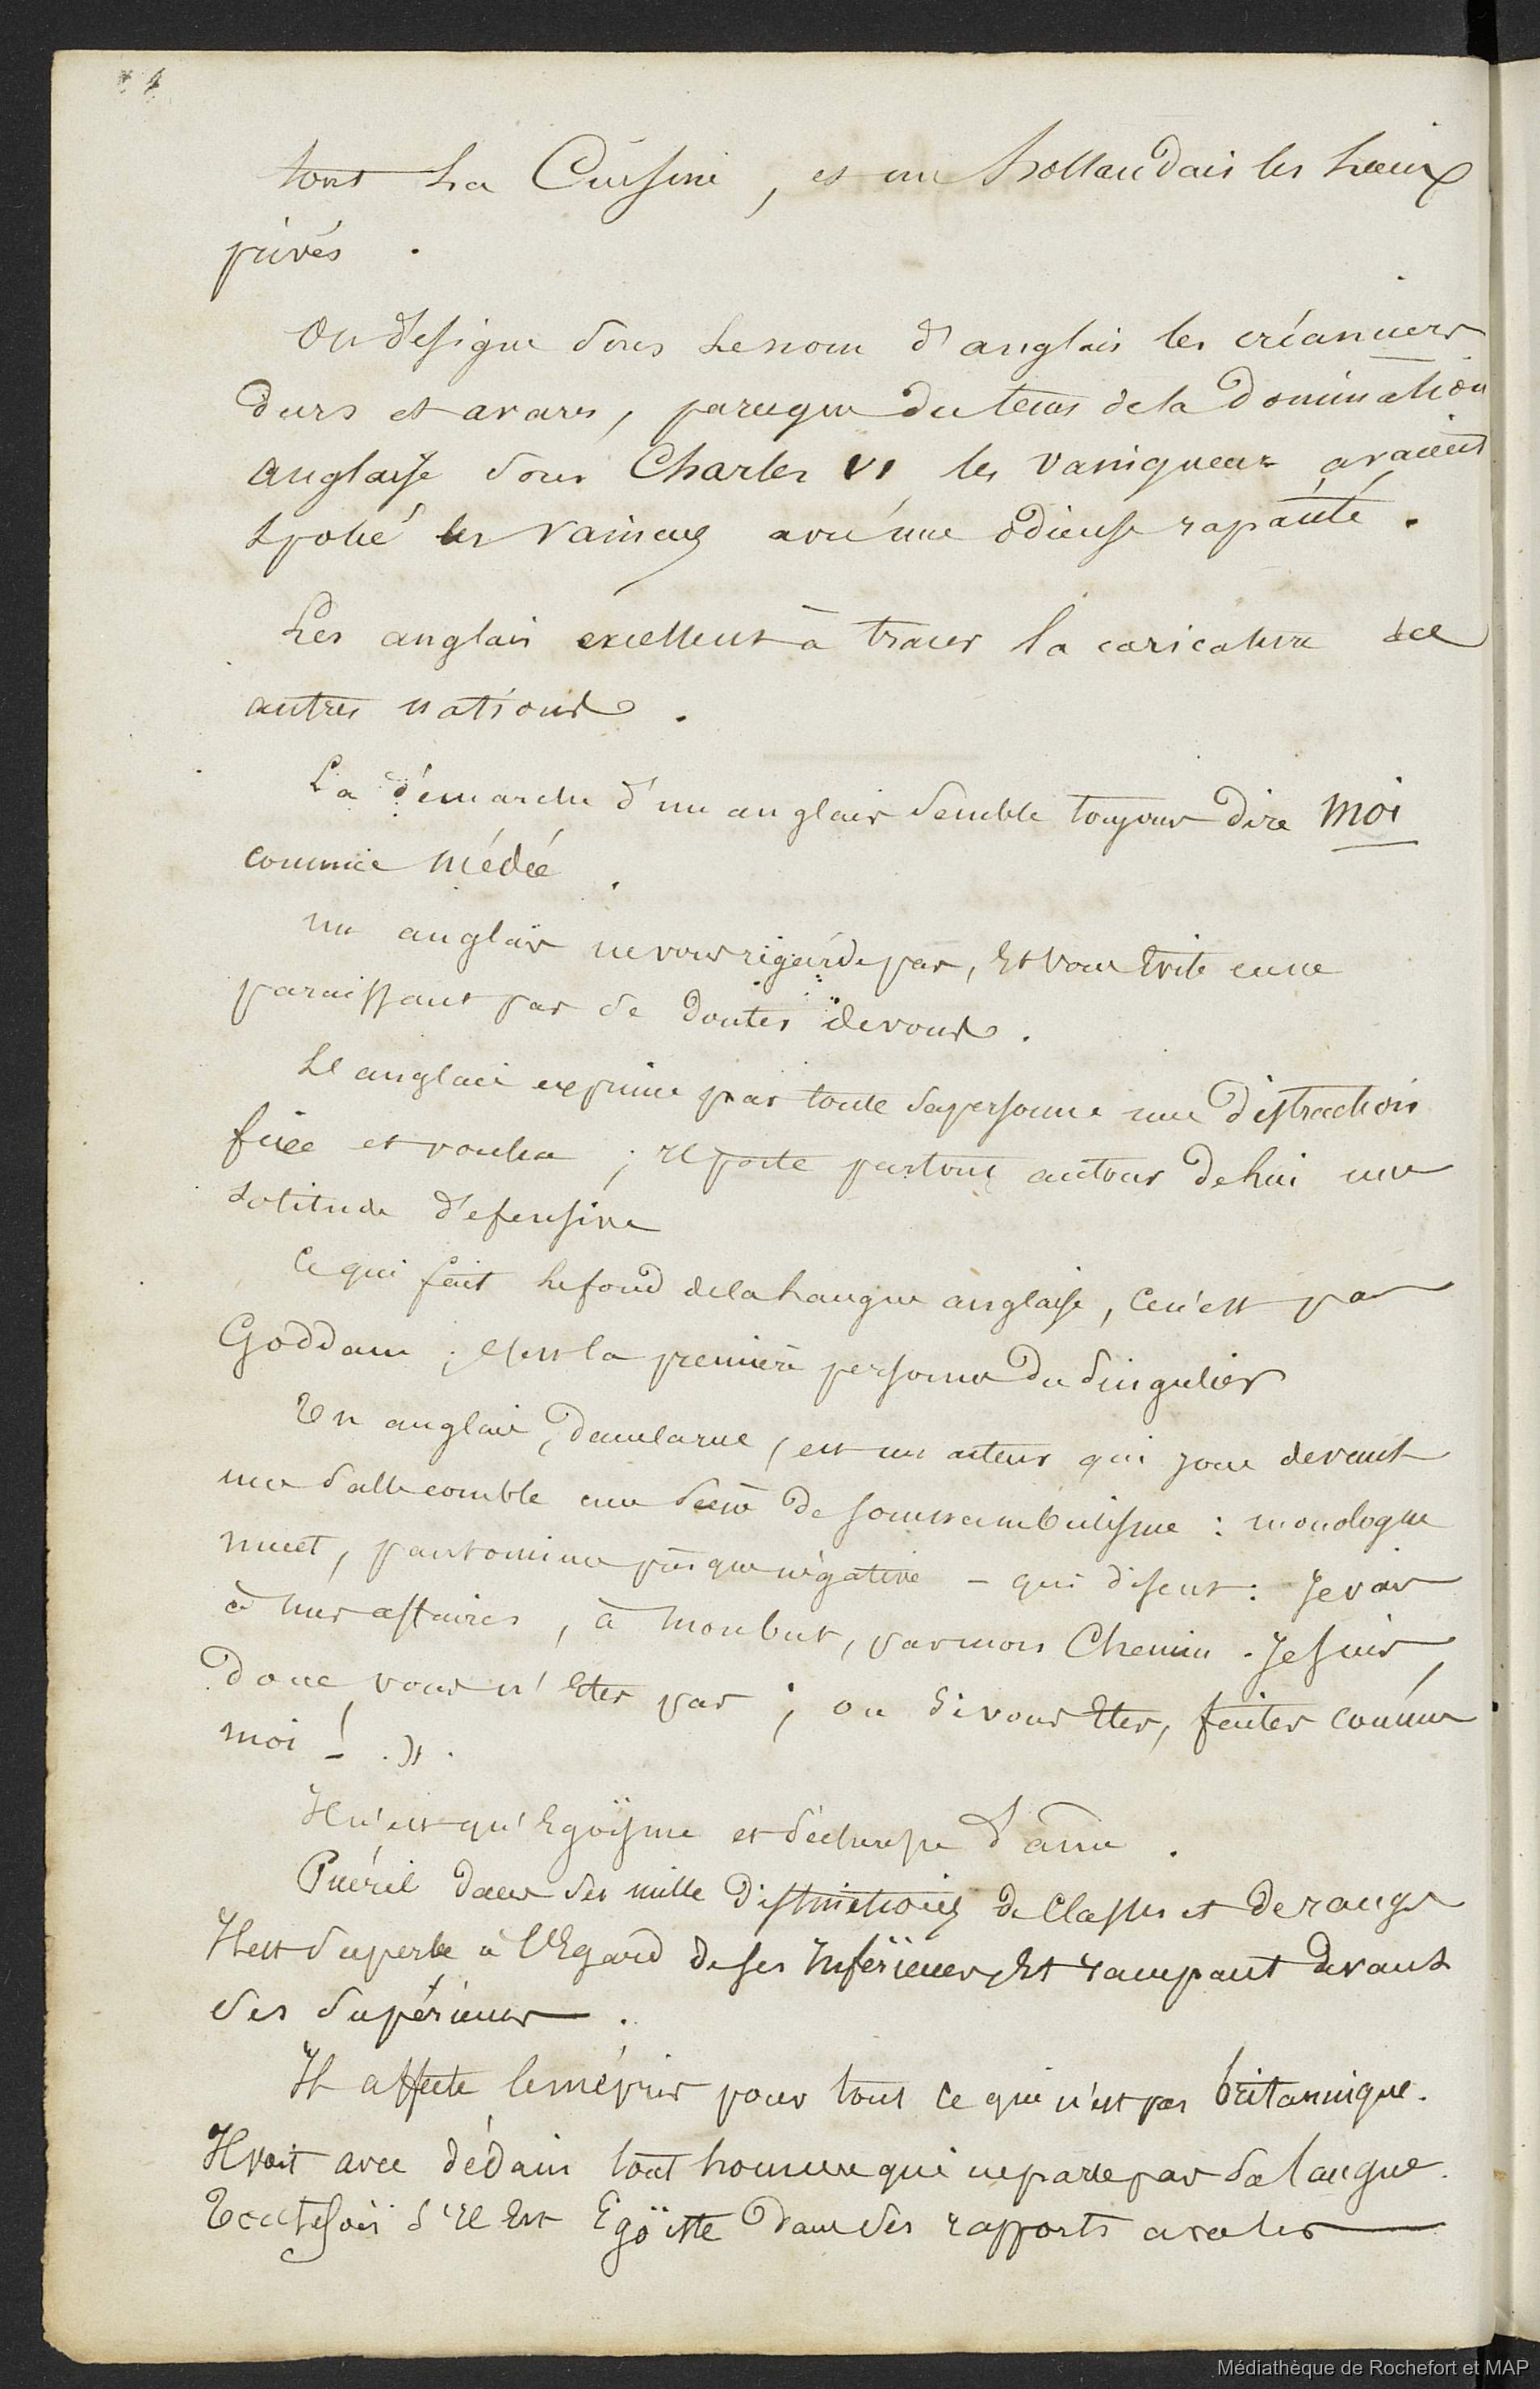 4
tout La Cuisine, et un hollandais les Lieux
privés.
On désigne sous Lenom d'anglais les créanciers
durs et avares, parceque du tems dela domination
anglaise sous Charles VI les vainqueurs avaient
spolié les vaincus avec une odieuse rapacité.
Les anglais excellent à tracer la caricature des
autres nations.
La démarche d'un anglais semble toujours dire moi
comme médée.
un anglais nevous regarde pas, Et vous Evite enne
paraissant pas se douter devous.
L'anglais exprime par toute sapersonne une distraction
fixe et voulue ; Il porte partout autour delui une
solitude défensive
Ce qui fait lefond dela Langue anglaise, Cen'est pas
Goddam ; c'est la première personne du singulier
Un anglais, danslarue, est un acteur qui joue devant
une salle comble une scène de somnambulisme : monologue
muet, pantomime presque négative - qui disent : Je vais
à mes affaires, à monbut, parmon Chemin. Je suis,
donc vous n'Etes pas ; ou sivous Etes, faites comme
moi ! ».
Il n'est qu'Egoïsme et sécheresse d'âme.
Puéril dans ses mille distinctions de Classes et de rangs
Il est superbe à l'Egard de ses Inférieurs, Et rampant devant
ses supérieurs.
Il affecte lemépris pour tout ce qui n'est pas britannique.
Il voit avec dédain tout homme qui neparle pas sa langue.
Toutefois s'Il Est Egoïste dans ses rapports avec les
Médiathèque de Rochefort et MAP